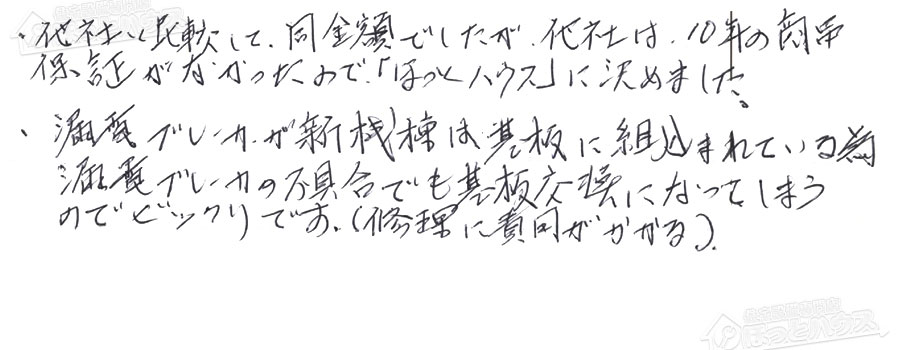 ・他社と比較して、同金額でしたが、他社は、10年の商品
保証がなかったので、「ほっとハウス」に決めました。
・漏電ブレーカーが新機種は基板に組込まれている為
漏電ブレーカの不具合でも基板交換になってしまう
のでビックリです。(修理に費用がかかる)
ほっとハウス